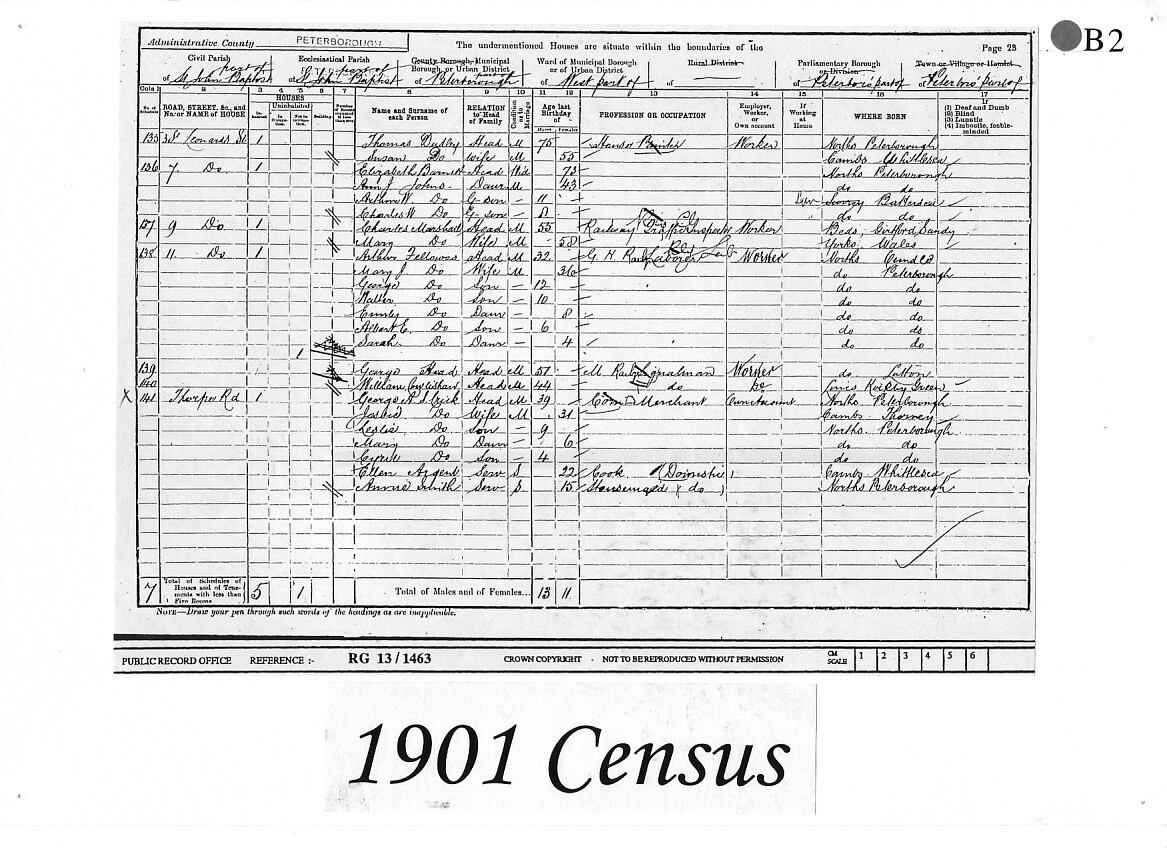 B2
Administrative County PETERBOROUGH The undermentioned Houses are situate within the boundaries of the Page 23
Civil Parish Ecclesiastical Parish County Borough, Municipal Borough, or Urban District Ward of Municipal Borough or of Urban District Rural District Parliamentary Borough or Division Town or Village or Hamlet
part of St John Baptist part of St John Baptist of Peterborough part of of West part of of Peterboro' part of of Peterboro' part of
Cols 1 2 3 4 5 6 7 8 9 10 11 12 13 14 15 16 17
No. of Schedule ROAD, STREET, &c., and No. or NAME of HOUSE HOUSES Inhabited Uninhabited In Occupation Not in Occupation Building Name and Surname of each Person RELATION to Head of Family Condition as to Marriage Age last Birthday of Males Females PROFESSION OR OCCUPATION Employer, Worker, or Own account If Working at Home WHERE BORN If (1) Deaf and Dumb (2) Blind (3) Lunatic (4) Imbecile, feeble-minded
135 3 St Leonards St 1 Thomas Dudley Head M 75 Worker Norths Peterborough
Susan Do Wife M 55 Cambs Whittlesea
136 7 Do 1 Elizabeth Barnett Head Wid 73 Norths Peterborough
Ann J Johns Daur M 43 do do
Arthur W. Do G-son — 11 Surrey Battersea
Charles W Do G-son — 8 do do
137 9 Do 1 Charles Marshall Head M 55 Railway Traffic Inspector Worker Beds, Sandy
Mary Do Wife M 58 Yorks Wales
138 11 Do 1 Arthur Fellows Head M 32 G. N. Labourer Worker Norths Oundle
Mary J Do Wife M 36 do Peterborough
George Do Son — 12 do do
Walter Do Son — 10 do do
Emily Do Daur — 8 do do
Albert E. Do Son — 6 do do
Sarah Do Daur — 4 do do
1
139 George Head Head M 51 M. Signalman Worker do Sutton
140 William Head M 44 do Do
X 141 Thorpe Rd 1 George Head M 39 Corn Merchant Own Account Norths Peterborough
Do Wife M 31 Cambs Thorney
Leslie Do Son — 9 Norths Peterborough
Mary Do Daur — 6 do do
Cyril Do Son — 4 do do
Ellen Argent Serv S 22 Cook (Domestic) Cambs Whittlesea
Annie Smith Serv S 15 Housemaid (do) Norths Peterborough
7 Total of Schedules of Houses and of Tenements with less than Five Rooms 5 1 Total of Males and of Females... 13 11
NOTE—Draw your pen through such words of the headings as are inapplicable.
PUBLIC RECORD OFFICE REFERENCE :- RG 13/1463 CROWN COPYRIGHT - NOT TO BE REPRODUCED WITHOUT PERMISSION CM SCALE 1 2 3 4 5 6
1901 Census